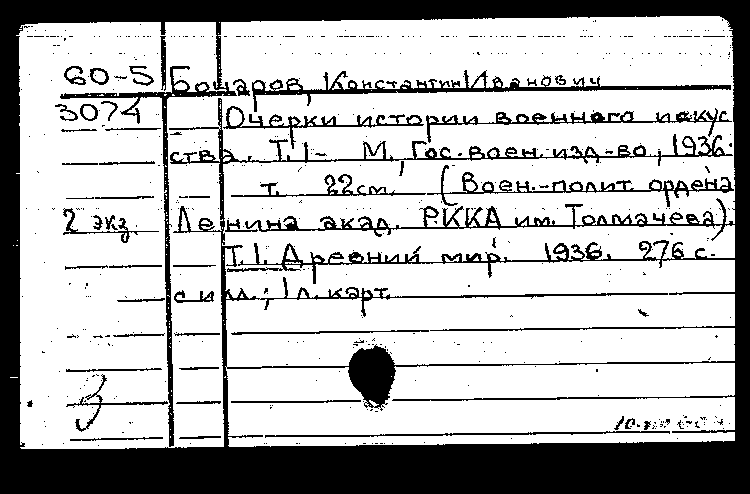 60-5 Бочаров, Константин Иванович
3074 Очерки истории военного искус
ства. Т. 1- М., Гос. воен. изд-во, 1936-
т. 22см. (Воен.-полит. ордена
2 экз. Ленина акад. РККА им. Толмачева).
Т. 1. Древний мир. 1936. 276 с.
с илл.; 1 л. карт.
З